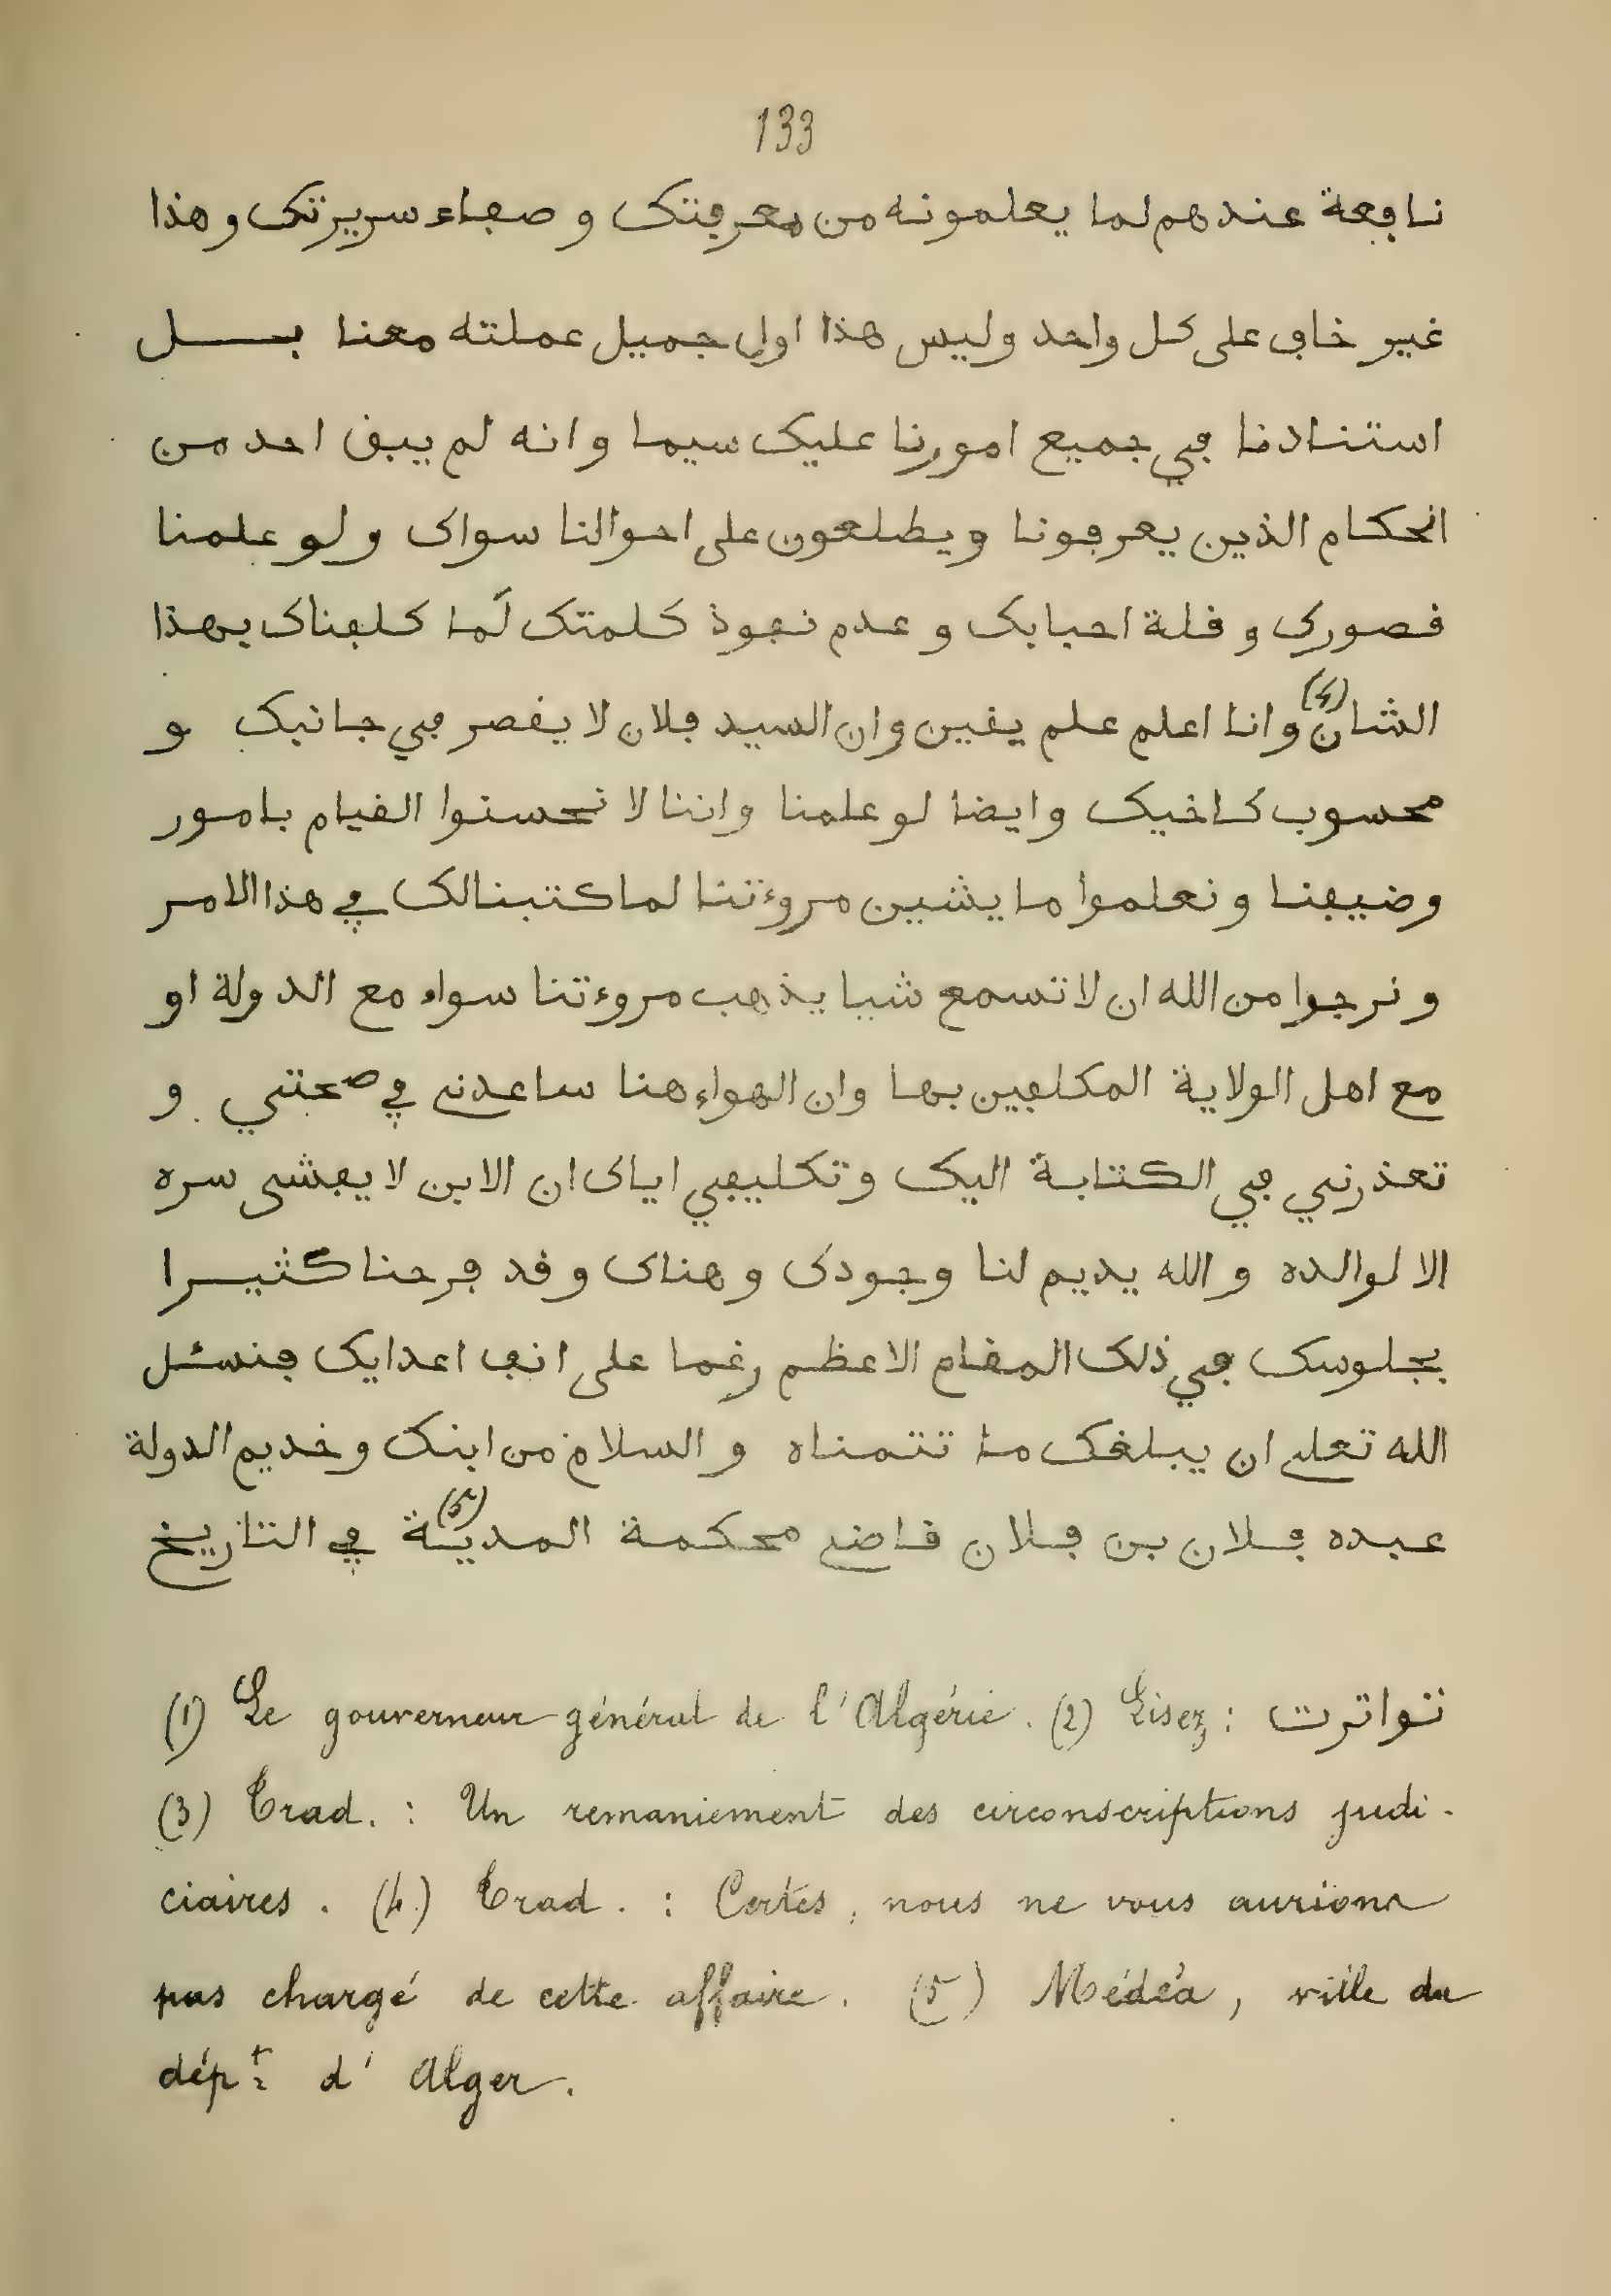 133
نافعة عندهم لما يعلمونه من معرفتك و صفاء سريرتك و هذا
غير خاف على كل واحد وليس هذا اول جميل عملته معنا بل
استنادنا في جميع امورنا عليك سيما و انه لم يبق احد من
الحكام الذين يعرفونا ويطلعون على احوالنا سواك و لو علمنا
قصورك و قلة احبابك و عدم نفوذ كلمتك لَما كلفناك بهذا
الشان (4) وانا اعلم علم يقين وان السيد فلان لا يقصر في جانبك و
محسوب كاخيك وايضا لو علمنا واننا لا نحسنوا القيام بامور
وضيفنا و نعلموا ما يشين مروءتنا لما كتبنا لك في هذا الامر
و نرجوا من الله ان لا تسمع شيا يذهب مروءتنا سواء مع الدولة او
مع اهل الولاية المكلفين بها وان الهواء هنا ساعدني في صحتي و
تعذرني في الكتابة اليك و تكليفي اياك ان الابن لا يفشى سره
الا لوالده و الله يديم لنا وجودك و هناك و قد فرحنا كثيرا
بجلوسك في ذلك المقام الاعظم رغما على انف اعدايك فنسئل
الله تعلى ان يبلغك ما تتمناه و السلام من ابنك و خديم الدولة
عبده فلان بن فلان قاضي محكمة المدية (5) في التاريخ
(1) Le gouverneur général de l'Algérie. (2) Lisez : تواترت
(3) Trad. : Un remaniement des circonscriptions judi-
ciaires. (4) Trad. : Certes, nous ne vous aurions
pas chargé de cette affaire. (5) Médéa, ville du
dépt d'Alger.